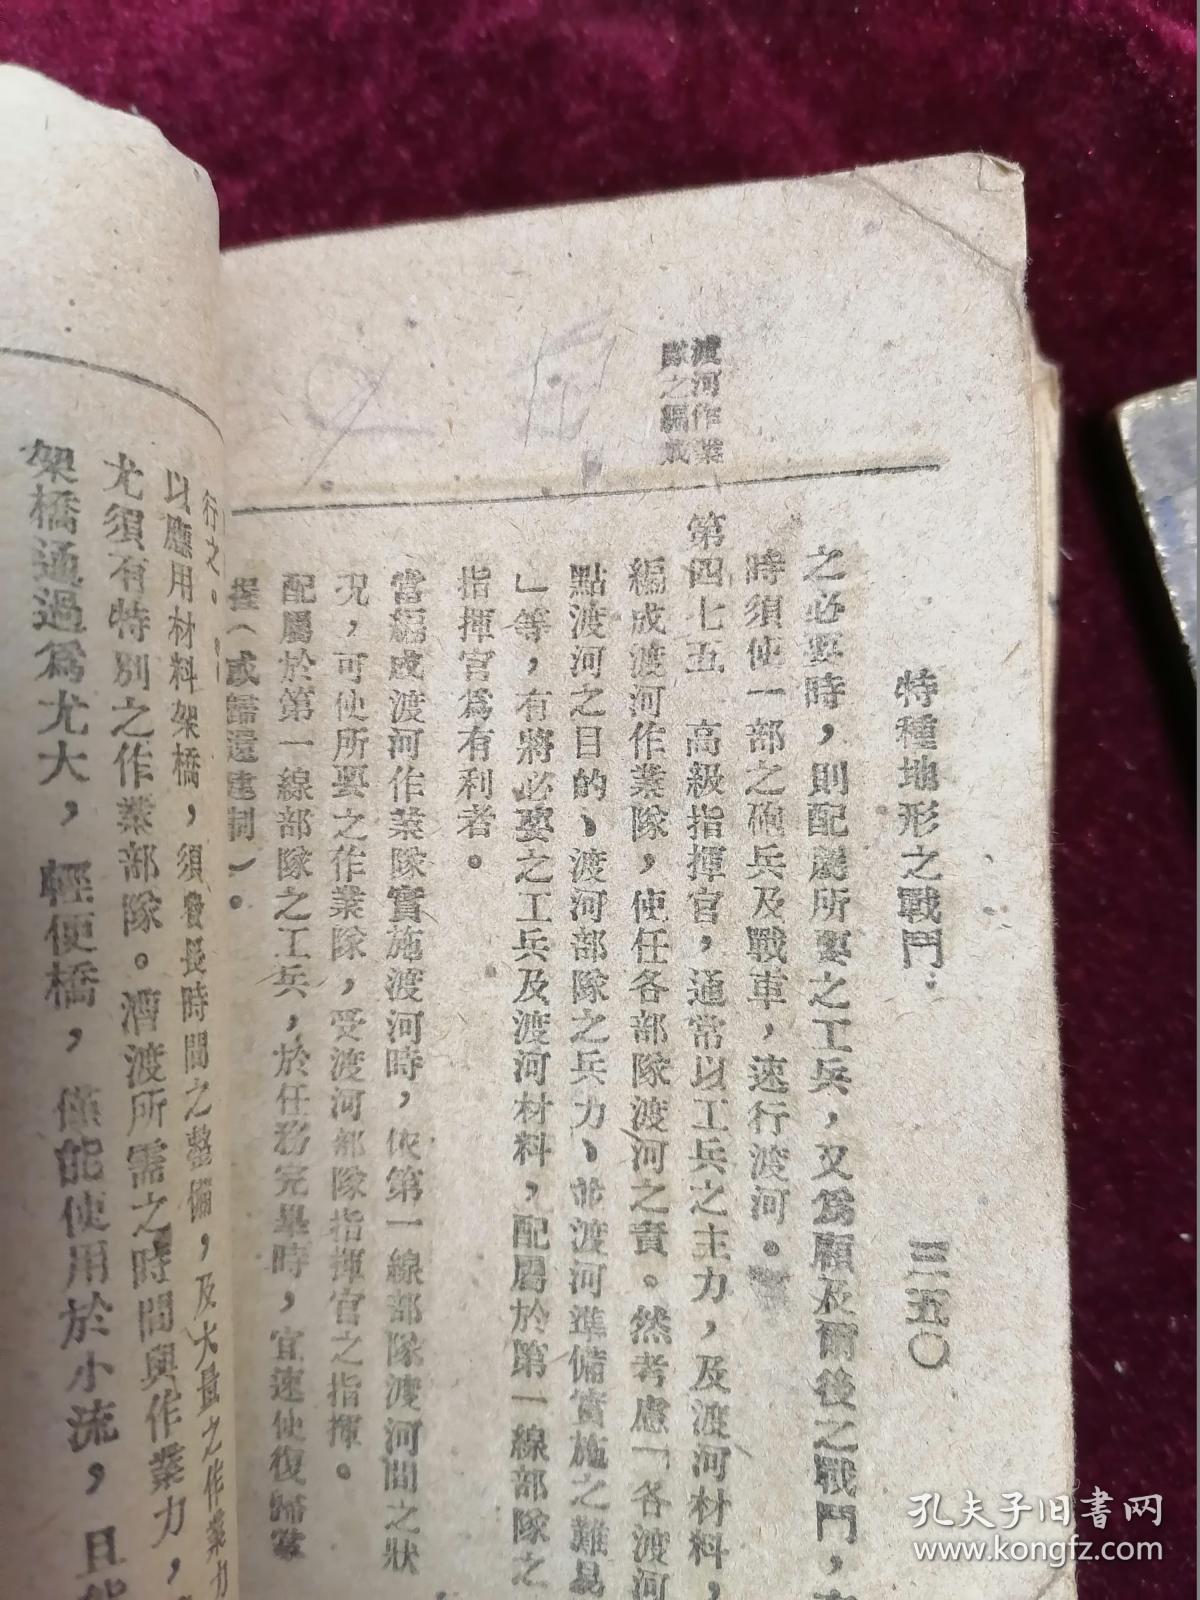 特種地形之戰鬥
三五〇
之必要時，則配屬所要之工兵，又爲顧及爾後之戰鬥，
時須使一部之砲兵及戰車，速行渡河。
渡河作業
隊之編成
第四七五　高級指揮官，通常以工兵之主力，及渡河材料，
編成渡河作業隊，使任各部隊渡河之責。然考慮「各渡河
點渡河之目的、渡河部隊之兵力、並渡河準備實施之難易
」等，有將必要之工兵及渡河材料，配屬於第一線部隊之
指揮官爲有利者。
當編成渡河作業隊實施渡河時，依第一線部隊渡河間之狀
況，可使所要之作業隊，受渡河部隊指揮官之指揮。
配屬於第一線部隊之工兵，於任務完畢時，宜速使復歸掌
握（或歸還建制）。
行之。
以應用材料架橋，須費長時間之整備，及大量之作業力
尤須有特別之作業部隊。漕渡所需之時間與作業力，
架橋通過爲尤大，輕便橋，僅能使用於小流，且
孔夫子旧书网
www.kongfz.com